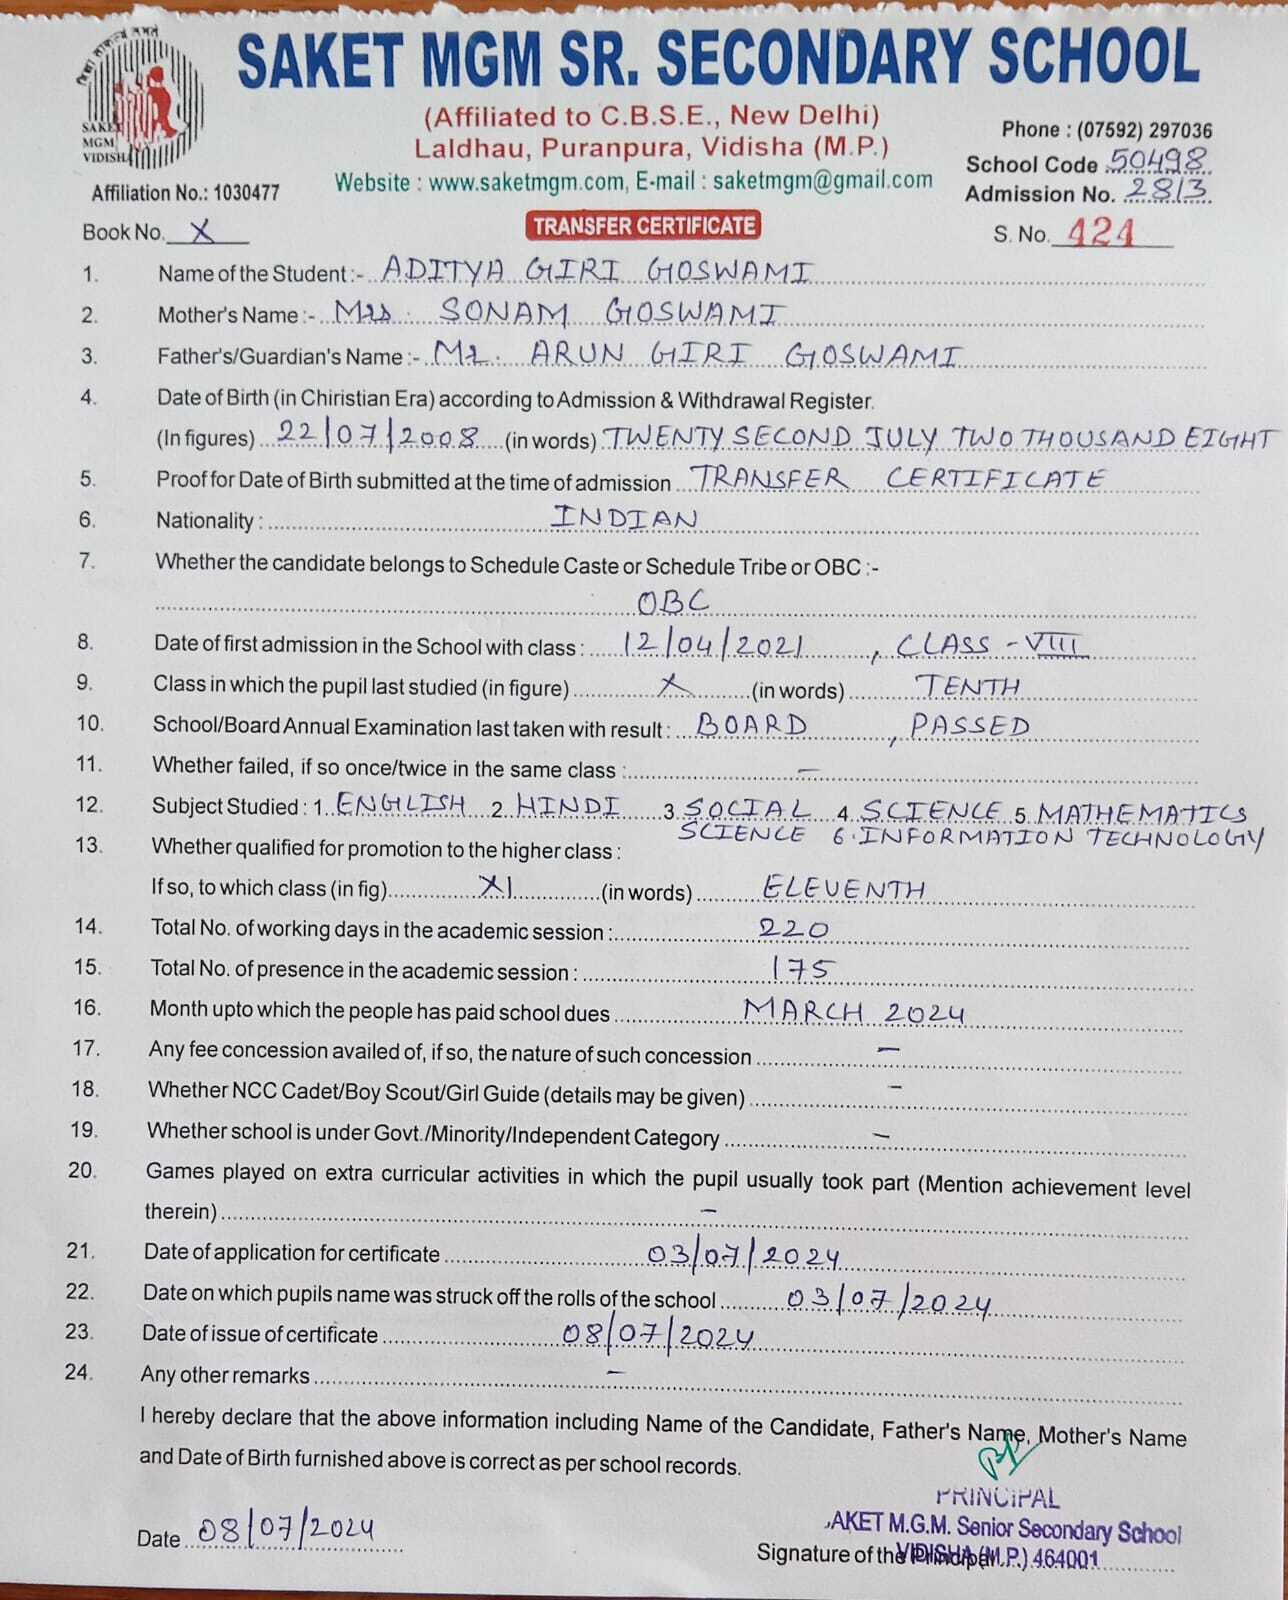 SAKET MGM SR. SECONDARY SCHOOL
(Affiliated to C.B.S.E., New Delhi)
Laldhau, Puranpura, Vidisha (M.P.)
Website : www.saketmgm.com, E-mail : saketmgm@gmail.com
SAKET
MGM
VIDISHA
Affiliation No.: 1030477
Phone : (07592) 297036
School Code 50498
Admission No. 2813
Book No. X
TRANSFER CERTIFICATE
S. No. 424
1. Name of the Student :- ADITYA GIRI GOSWAMI
2. Mother's Name :- Mrs. SONAM GOSWAMI
3. Father's/Guardian's Name :- Mr. ARUN GIRI GOSWAMI
4. Date of Birth (in Chiristian Era) according to Admission & Withdrawal Register.
(In figures) 22/07/2008 (in words) TWENTY SECOND JULY TWO THOUSAND EIGHT
5. Proof for Date of Birth submitted at the time of admission TRANSFER CERTIFICATE
6. Nationality : INDIAN
7. Whether the candidate belongs to Schedule Caste or Schedule Tribe or OBC :-
OBC
8. Date of first admission in the School with class : 12/04/2021, CLASS - VIII
9. Class in which the pupil last studied (in figure) X (in words) TENTH
10. School/Board Annual Examination last taken with result : BOARD, PASSED
11. Whether failed, if so once/twice in the same class : –
12. Subject Studied : 1. ENGLISH 2. HINDI 3. SOCIAL 4. SCIENCE 5. MATHEMATICS
SCIENCE 6. INFORMATION TECHNOLOGY
13. Whether qualified for promotion to the higher class :
If so, to which class (in fig) XI (in words) ELEVENTH
14. Total No. of working days in the academic session : 220
15. Total No. of presence in the academic session : 175
16. Month upto which the people has paid school dues MARCH 2024
17. Any fee concession availed of, if so, the nature of such concession –
18. Whether NCC Cadet/Boy Scout/Girl Guide (details may be given) –
19. Whether school is under Govt./Minority/Independent Category –
20. Games played on extra curricular activities in which the pupil usually took part (Mention achievement level
therein) –
21. Date of application for certificate 03/07/2024
22. Date on which pupils name was struck off the rolls of the school 03/07/2024
23. Date of issue of certificate 08/07/2024
24. Any other remarks –
I hereby declare that the above information including Name of the Candidate, Father's Name, Mother's Name
and Date of Birth furnished above is correct as per school records.
PRINCIPAL
AKET M.G.M. Senior Secondary School
VIDISHA (M.P.) 464001
Date 08/07/2024
Signature of the Principal